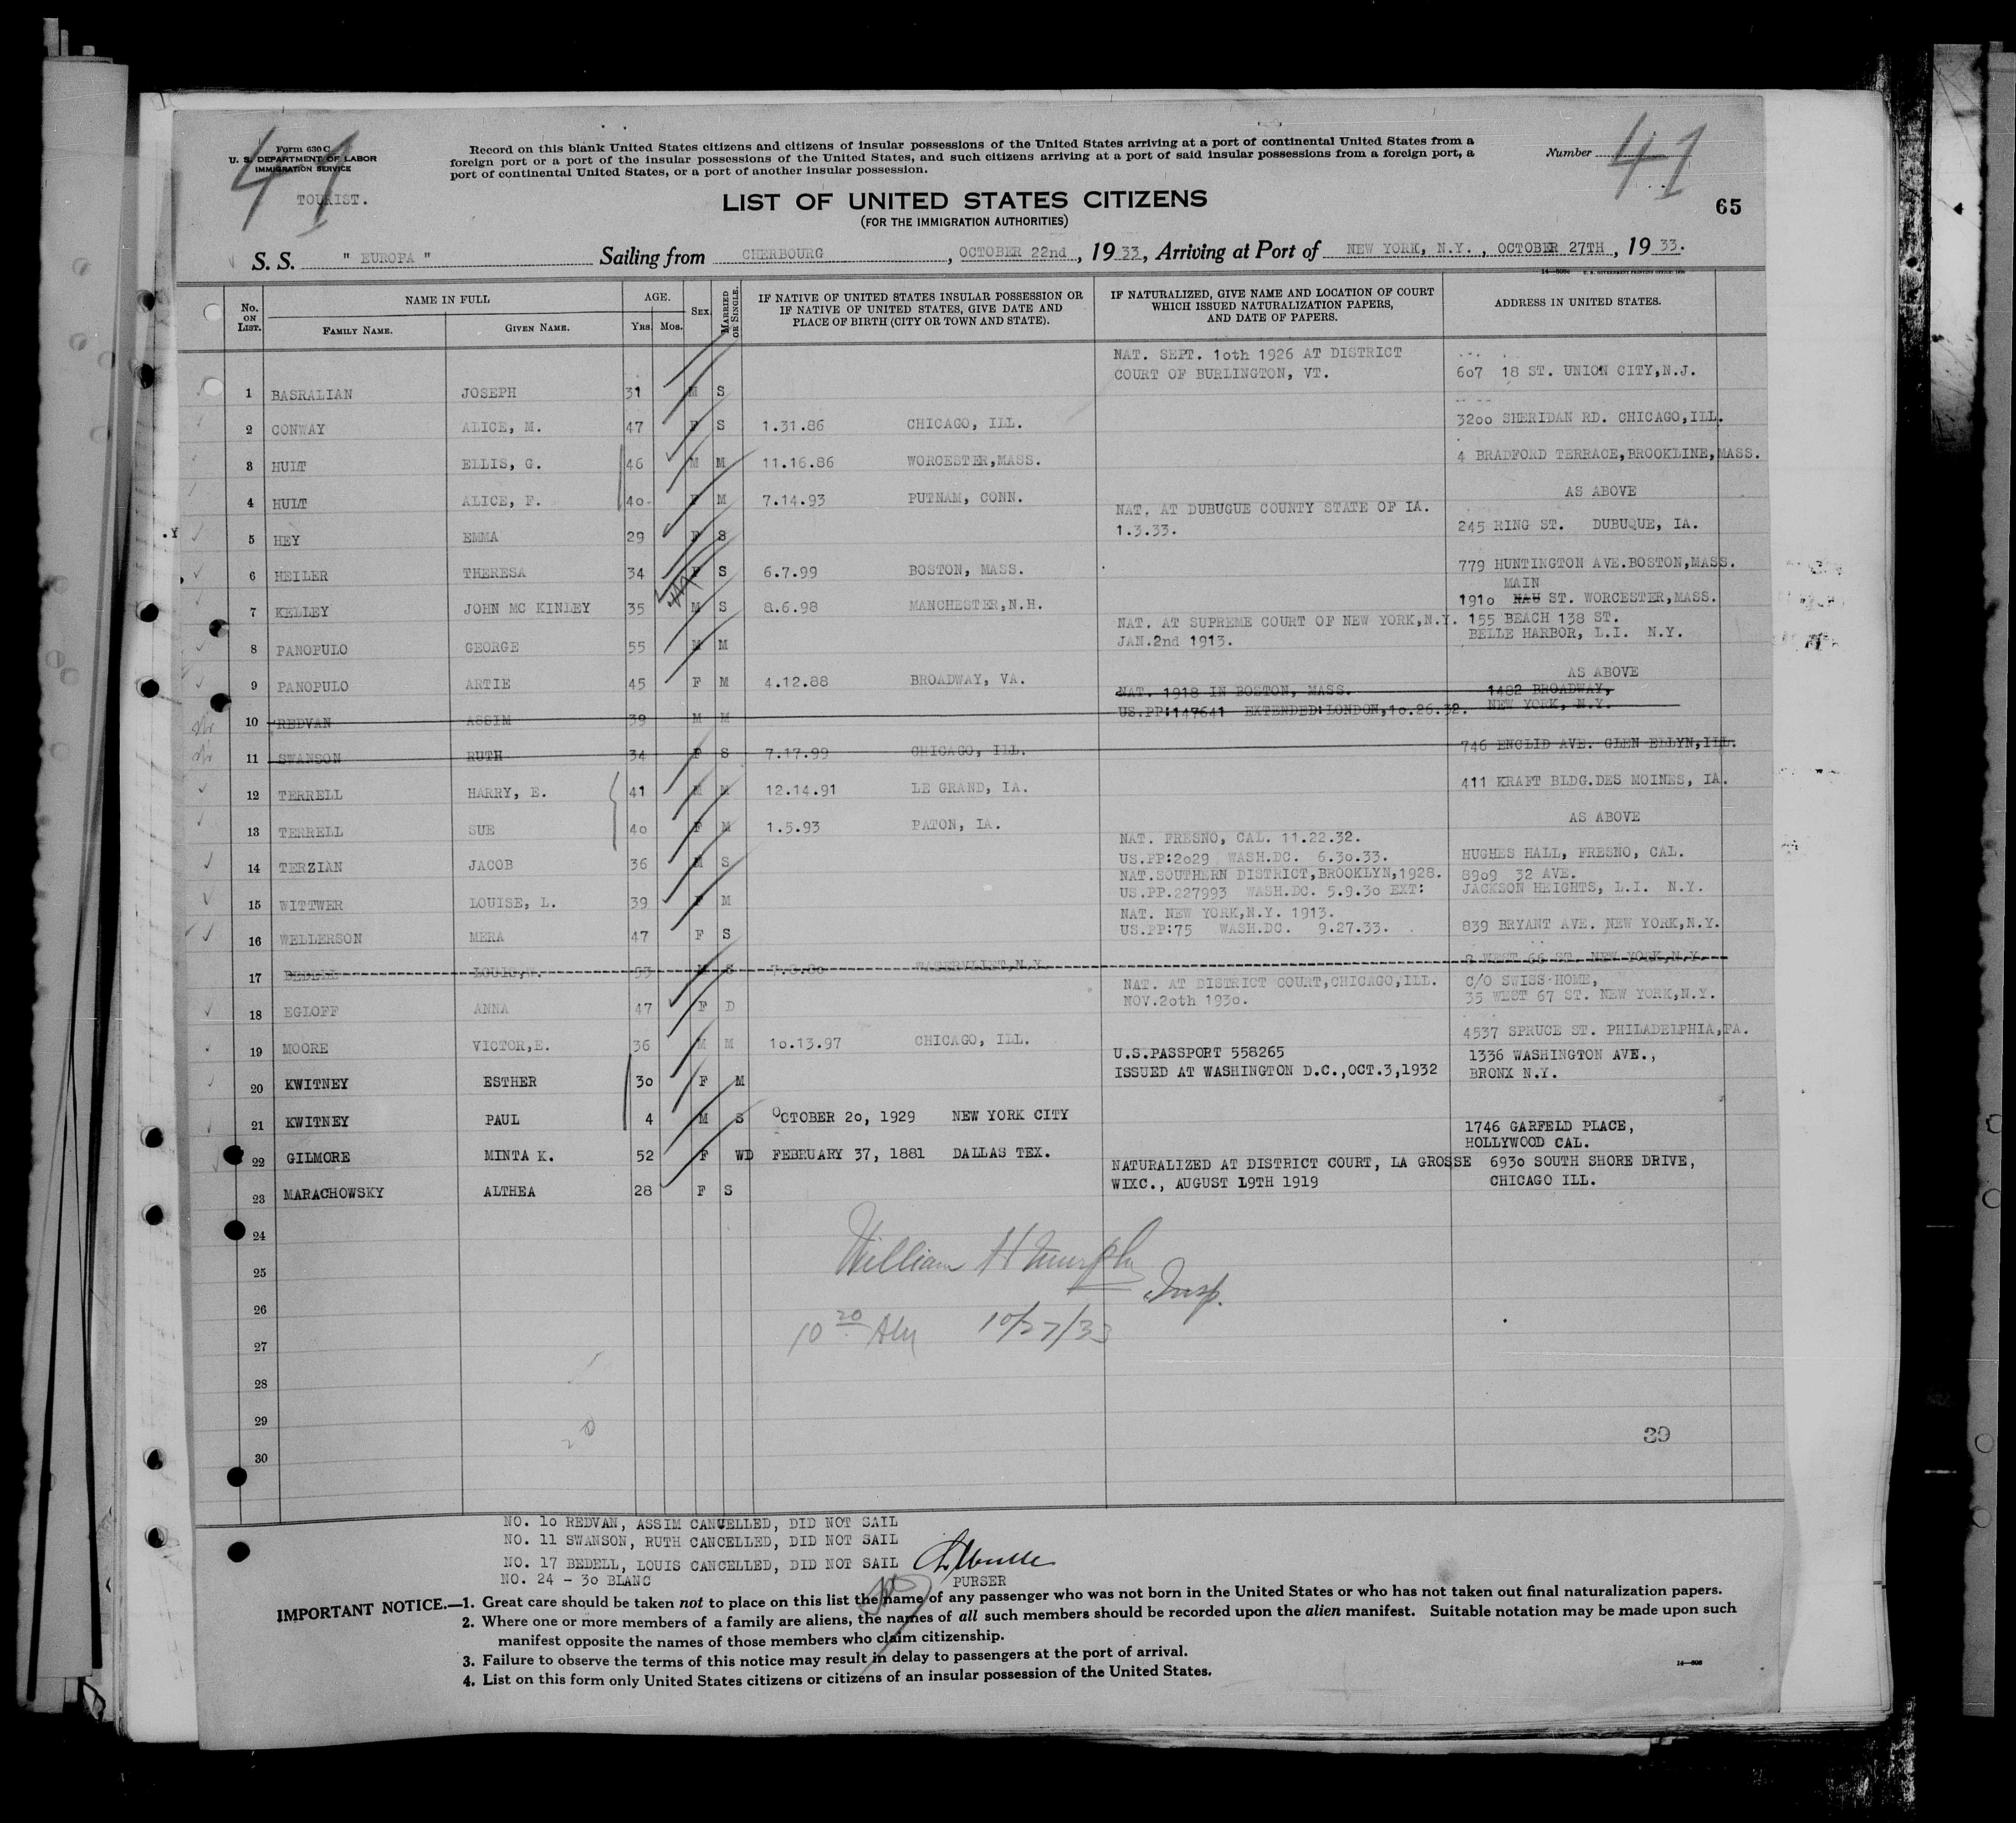 41
41
Form 630 C
U. S. DEPARTMENT OF LABOR
IMMIGRATION SERVICE
TOURIST.
Record on this blank United States citizens and citizens of insular possessions of the United States arriving at a port of continental United States from a
foreign port or a port of the insular possessions of the United States, and such citizens arriving at a port of said insular possessions from a foreign port, a
port of continental United States, or a port of another insular possession.
Number
LIST OF UNITED STATES CITIZENS
(FOR THE IMMIGRATION AUTHORITIES)
65
S. S. " EUROPA " Sailing from CHERBOURG, OCTOBER 22nd, 1933, Arriving at Port of NEW YORK, N.Y., OCTOBER 27TH, 1933.
No. ON LIST.
NAME IN FULL
FAMILY NAME. GIVEN NAME.
AGE.
Yrs. Mos.
SEX
MARRIED OR SINGLE.
IF NATIVE OF UNITED STATES INSULAR POSSESSION OR
IF NATIVE OF UNITED STATES, GIVE DATE AND
PLACE OF BIRTH (CITY OR TOWN AND STATE).
IF NATURALIZED, GIVE NAME AND LOCATION OF COURT
WHICH ISSUED NATURALIZATION PAPERS,
AND DATE OF PAPERS.
ADDRESS IN UNITED STATES.
NAT. SEPT. 1oth 1926 AT DISTRICT
COURT OF BURLINGTON, VT. 6o7 18 ST. UNION CITY,N.J.
1 BASRALIAN JOSEPH 31 M S
2 CONWAY ALICE, M. 47 F S 1.31.86 CHICAGO, ILL. 32oo SHERIDAN RD. CHICAGO,ILL.
3 HULT ELLIS, G. 46 M M 11.16.86 WORCESTER,MASS. 4 BRADFORD TERRACE,BROOKLINE,MASS.
4 HULT ALICE, F. 4o F M 7.14.93 PUTNAM, CONN. AS ABOVE
NAT. AT DUBUGUE COUNTY STATE OF IA.
5 HEY EMMA 29 F S 1.3.33. 245 RING ST. DUBUQUE, IA.
6 HEILER THERESA 34 F S 6.7.99 BOSTON, MASS. 779 HUNTINGTON AVE.BOSTON,MASS.
MAIN
7 KELLEY JOHN MC KINLEY 35 M S 8.6.98 MANCHESTER,N.H. 191o NAU ST. WORCESTER,MASS.
NAT. AT SUPREME COURT OF NEW YORK,N.Y. 155 BEACH 138 ST.
8 PANOPULO GEORGE 55 M M JAN.2nd 1913. BELLE HARBOR, L.I. N.Y.
9 PANOPULO ARTIE 45 F M 4.12.88 BROADWAY, VA. AS ABOVE
NAT. 1918 IN BOSTON, MASS. 1482 BROADWAY,
10 REDVAN ASSIM 39 M M US.PP:147641 EXTENDED:LONDON,1o.26.32. NEW YORK, N.Y.
11 SWANSON RUTH 34 F S 7.17.99 CHICAGO, ILL. 746 ENCLID AVE. GLEN ELLYN,ILL.
12 TERRELL HARRY, E. 41 M M 12.14.91 LE GRAND, IA. 411 KRAFT BLDG.DES MOINES, IA.
13 TERRELL SUE 4o F M 1.5.93 PATON, IA. AS ABOVE
NAT. FRESNO, CAL. 11.22.32.
14 TERZIAN JACOB 36 M S US.PP:2o29 WASH.DC. 6.3o.33. HUGHES HALL, FRESNO, CAL.
NAT.SOUTHERN DISTRICT,BROOKLYN,1928. 89o9 32 AVE.
15 WITTWER LOUISE, L. 39 F M US.PP.227993 WASH.DC. 5.9.3o EXT: JACKSON HEIGHTS, L.I. N.Y.
NAT. NEW YORK,N.Y. 1913.
16 WELLERSON MERA 47 F S US.PP:75 WASH.DC. 9.27.33. 839 BRYANT AVE. NEW YORK,N.Y.
17 BEDELL LOUIS,W. 53 M S 7.8.8o WATERVLIET,N.Y. 8 WEST 66 ST. NEW YORK,N.Y.
NAT. AT DISTRICT COURT,CHICAGO,ILL. C/O SWISS-HOME,
18 EGLOFF ANNA 47 F D NOV.2oth 193o. 35 WEST 67 ST. NEW YORK,N.Y.
19 MOORE VICTOR,E. 36 M M 1o.13.97 CHICAGO, ILL. 4537 SPRUCE ST. PHILADELPHIA,PA.
U.S.PASSPORT 558265 1336 WASHINGTON AVE.,
20 KWITNEY ESTHER 3o F M ISSUED AT WASHINGTON D.C.,OCT.3,1932 BRONX N.Y.
21 KWITNEY PAUL 4 M S OCTOBER 2o, 1929 NEW YORK CITY
1746 GARFELD PLACE,
HOLLYWOOD CAL.
22 GILMORE MINTA K. 52 F WD FEBRUARY 37, 1881 DALLAS TEX.
NATURALIZED AT DISTRICT COURT, LA GROSSE 693o SOUTH SHORE DRIVE,
23 MARACHOWSKY ALTHEA 28 F S WIXC., AUGUST 19TH 1919 CHICAGO ILL.
24
25
26
27
28
29
30
William H Murphy
Insp.
10 20 AM 10/27/33
39
NO. 1o REDVAN, ASSIM CANCELLED, DID NOT SAIL
NO. 11 SWANSON, RUTH CANCELLED, DID NOT SAIL
NO. 17 BEDELL, LOUIS CANCELLED, DID NOT SAIL
NO. 24 - 3o BLANC
PURSER
IMPORTANT NOTICE.—1. Great care should be taken not to place on this list the name of any passenger who was not born in the United States or who has not taken out final naturalization papers.
2. Where one or more members of a family are aliens, the names of all such members should be recorded upon the alien manifest. Suitable notation may be made upon such
manifest opposite the names of those members who claim citizenship.
3. Failure to observe the terms of this notice may result in delay to passengers at the port of arrival.
4. List on this form only United States citizens or citizens of an insular possession of the United States.